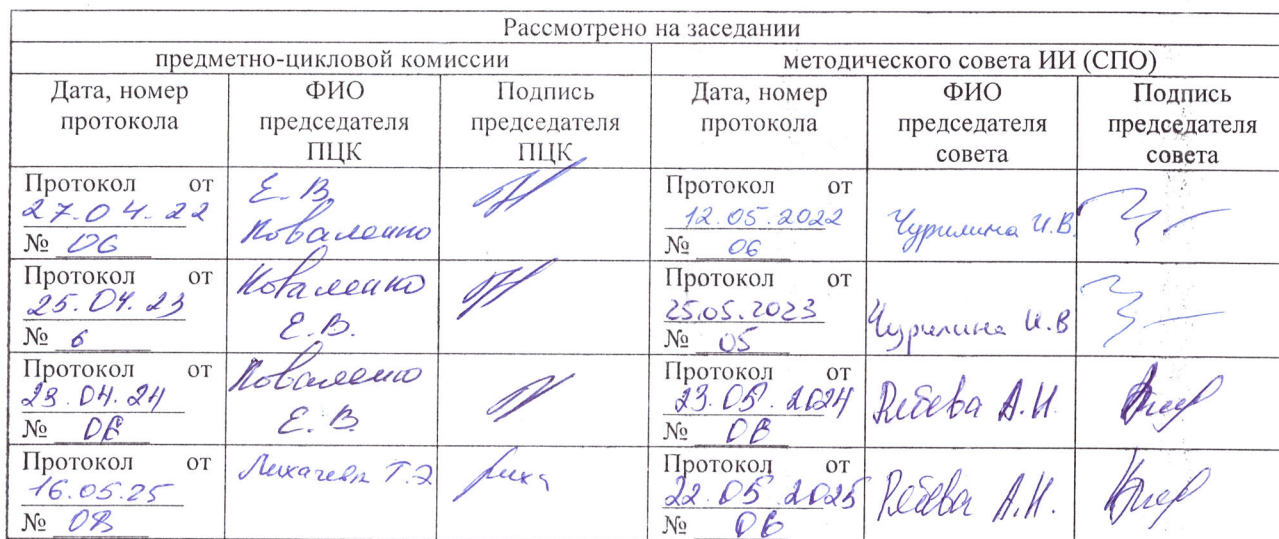 Рассмотрено на заседании
предметно-цикловой комиссии
методического совета ИИ (СПО)
Дата, номер протокола
ФИО председателя ПЦК
Подпись председателя ПЦК
Дата, номер протокола
ФИО председателя совета
Подпись председателя совета
Протокол от
27.04.22
№ 06
Е. В.
Коваленко
Протокол от
12.05.2022
№ 06
Чурилина И.В.
Протокол от
25.04.23
№ 6
Коваленко
Е. В.
Протокол от
25.05.2023
№ 05
Чурилина И.В
Протокол от
23.04.24
№ 06
Коваленко
Е. В.
Протокол от
23.05.2024
№ 06
А.И.
Протокол от
16.05.25
№
Лихачева Т.Э
Протокол от
22.05.2025
№ 06
А.И.